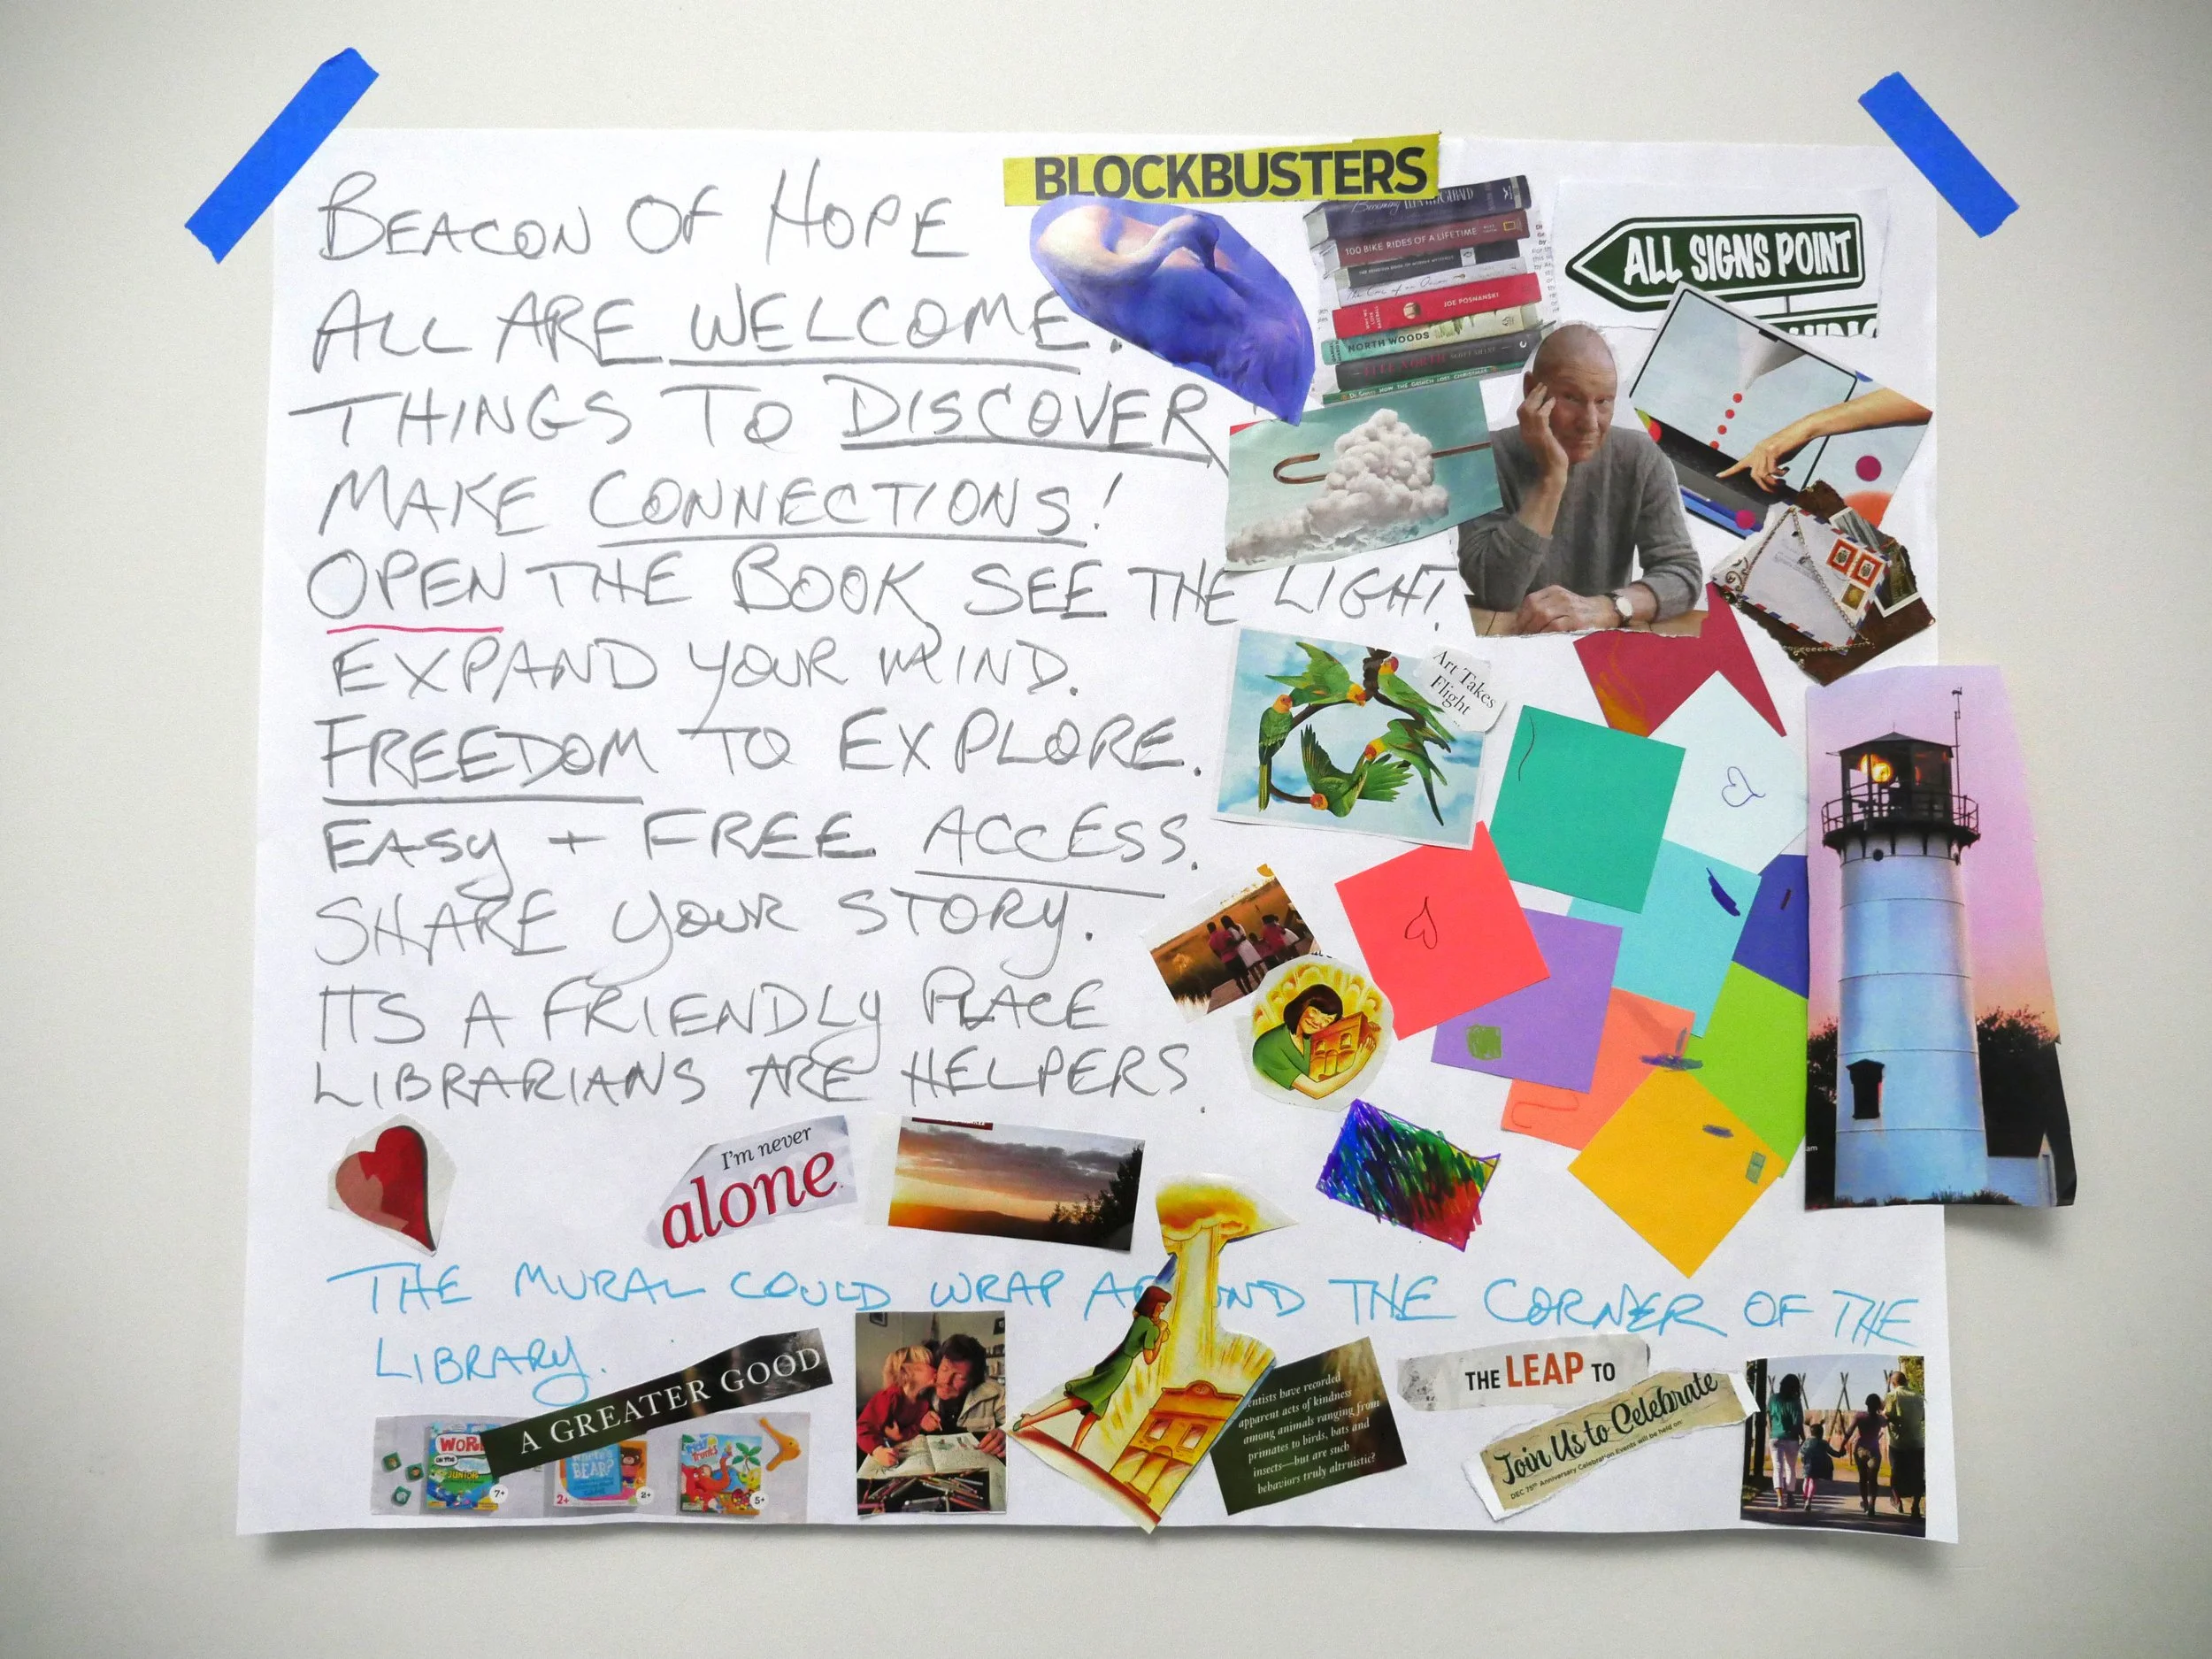 BEACON OF HOPE
ALL ARE WELCOME.
THINGS TO DISCOVER
MAKE CONNECTIONS!
OPEN THE BOOK SEE THE LIGHT!
EXPAND YOUR MIND.
FREEDOM TO EXPLORE.
EASY + FREE ACCESS.
SHARE YOUR STORY.
ITS A FRIENDLY PLACE
LIBRARIANS ARE HELPERS.
BLOCKBUSTERS
100 BIKE RIDES OF A LIFETIME
JOE POSNANSKI
NORTH WOODS
HOW THE GRINCH LOST CHRISTMAS
ALL SIGNS POINT
Art Takes
Flight
I'm never
alone.
THE MURAL COULD WRAP A ND THE CORNER OF THE
LIBRARY.
A GREATER GOOD
WOR
JUNIOR
7+
BEAR?
2+
2+
5+
entists have recorded
apparent acts of kindness
among animals ranging from
primates to birds, bats and
insects—but are such
behaviors truly altruistic?
THE LEAP TO
Join Us to Celebrate
DEC 75th Anniversary Celebration Events will be held on:
am